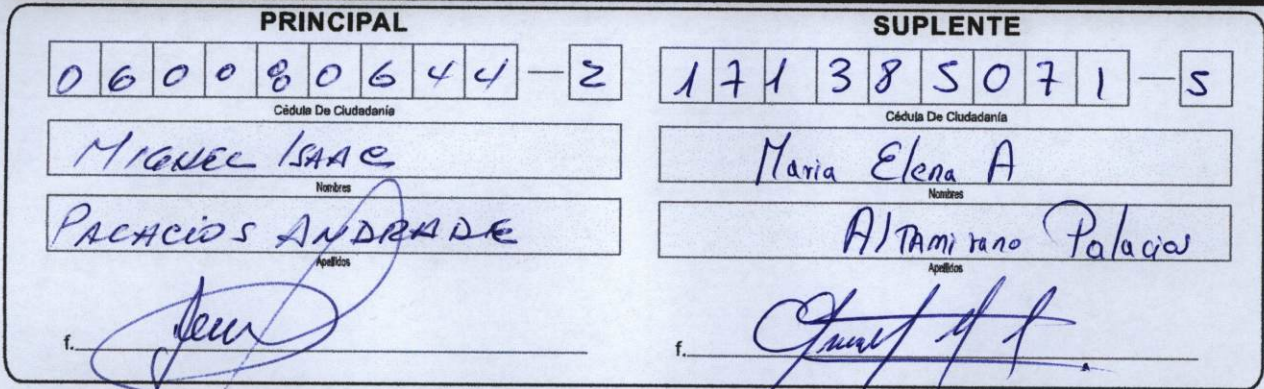 PRINCIPAL
060080644-2
Cédula De Ciudadanía
MIGUEL ISAAC
Nombres
PALACIOS ANDRADE
Apellidos
f.
SUPLENTE
171385071-5
Cédula De Ciudadanía
Maria Elena A
Nombres
Altamirano Palacios
Apellidos
f.